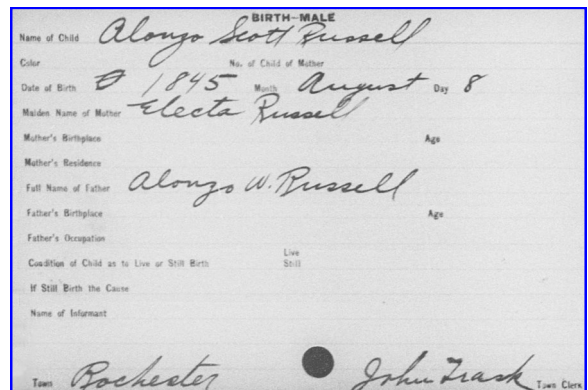 BIRTH—MALE
Name of Child Alonzo Scott Russell
Color No. of Child of Mother
Date of Birth 1845 Month August Day 8
Maiden Name of Mother Electa Russell
Mother's Birthplace Age
Mother's Residence
Full Name of Father Alonzo W. Russell
Father's Birthplace Age
Father's Occupation
Condition of Child as to Live or Still Birth Live
Still
If Still Birth the Cause
Name of Informant
Town Rochester John Trask Town Clerk